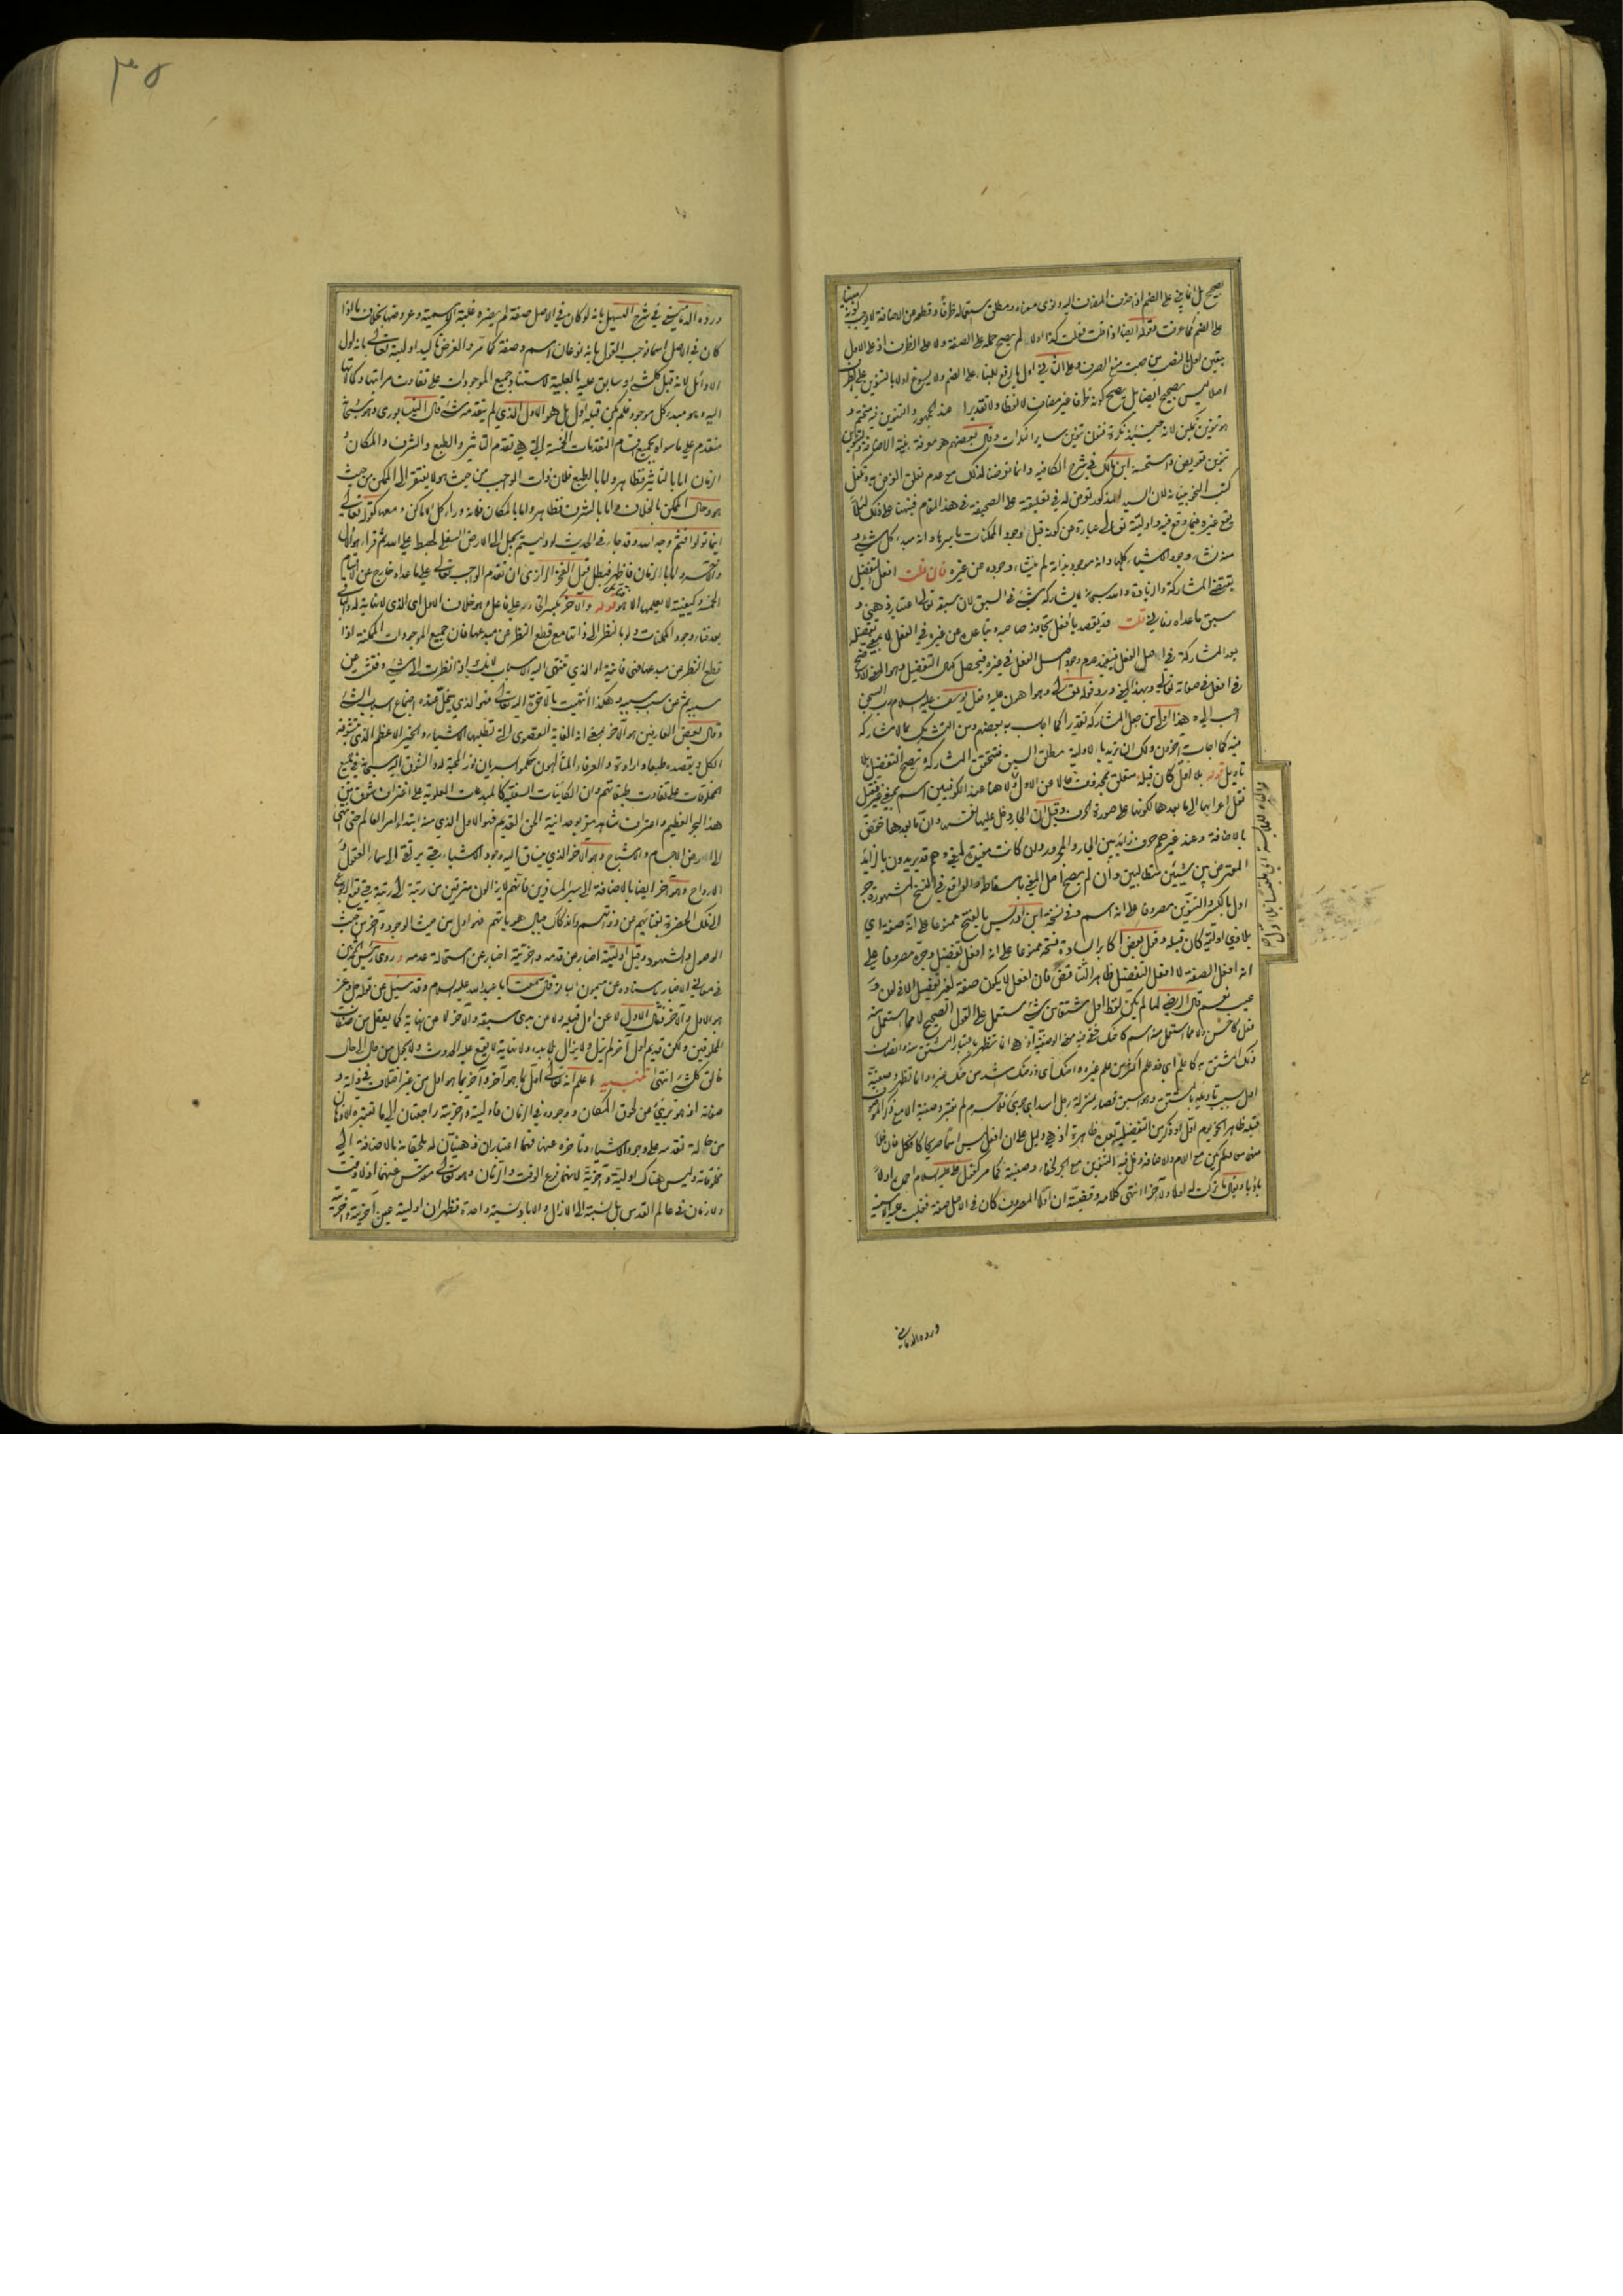 يصح بل انما يبنى على الضم اذا حذف المضاف اليه ونوى معناه ومطلق استعماله ظرفا وقطع عن الاضافة لا يوجب كونه مبنيا
على الضم كما عرفت فقوله ايضا اذا قلت فعلت كذا اولا لم يصح حمله على الصفة ولا على الظرف اذ على الاول
اصلا ليس بصحيح ايضا بل يصح كونه ظرفا غير مضاف لا لفظا ولا تقديرا
هو تنوين تمكين لانه حينئذ نكرة فنون تنوين ساير النكرات وقال بعضهم هو معرفة بنية الاضافة
تنوين تعويض واستحسنه ابن مالك في شرح الكافيه وانما تعرضنا لذلك مع عدم تعلق الغرض به وتكفل
كتب النحو ببيانه لان السيد المذكور تعرض له في تعليقته على الصحيفة في هذا المقام فنبهنا على ذلك لئلا
يقع غيره فيما وقع فيه واوليته تعالى عبارة عن كونه قبل وجود الممكنات باسرها وانه مبدء كل شيء و
منه نشاء وجود الاشياء كلها وانه موجود بذاته لم ينشاء وجوده عن غيره فان قلت افعل التفضيل
يقتضي المشاركة والزيادة والله سبحانه لا يشاركه شيء في السبق لان سبقه تعالى اعتباري ذهني و
سبق ما عداه زماني قلت قد يقصد بافعل تجاوز صاحبه وتباعده عن غيره في الفعل لا بمعنى تفضيله
بعد المشاركة في اصل الفعل فيفيد عدم وجود اصل الفعل في غيره فيحصل كمال التفضيل وهو المعنى الاوضح
في افعل في صفاته تعالى وبهذا المعنى ورد قوله تعالى وهو اهون عليه وقول يوسف عليه السلام رب السجن
احب الي وهذا اولى من جعل المشاركة تقديرا كما اجاب به بعضهم ومن التشريك بما لا مشاركة
فيه كما اجاب به اخرون ولك ان تريد بالاولية مطلق السبق فتتحقق المشاركة ويصح التفضيل بلا
تاويل قوله بلا اول كان قبله متعلق بمحذوف حالا من الاول ولا هنا عند الكوفيين اسم بمعنى غير فنقل
نقل اعرابها الى ما بعدها لكونها على صورة الحرف وقيل ان الجار دخل عليها نفسها وان ما بعدها خفض
بالاضافة وعند غيرهم حرف زائد بين الجار والمجرور وان كانت مفيدة لمعنى وهم قد يريدون بالزائد
المعترض بين شيئين متطالبين وان لم يصح اصل المعنى باسقاطه والواقع في النسخ المشهورة جر
اول بالكسر والتنوين مصروفا على انه اسم وفي نسخة ابن ادريس بالفتح ممنوعا على انه صفة اي
بلا ذي اولية كان قبله وقول بعض اكابر السادة فتحه ممنوعا على انه افعل تفضيل وجره مصروفا على
انه افعل الصفة لا افعل التفضيل ظاهر التناقض فان افعل لا يكون صفة لغير تفضيل الا في لون و
عيب نعم قال الرضي لما لم يكن لفظ اول مشتقا من شيء مستعمل على القول الصحيح لا مما استعمل منه
فعل كاحسن ولا مما استعمل منه اسم كاحنك خفي فيه معنى الوصفية اذ هي انما تظهر باعتبار المشتق منه واتصاف
ذلك المشتق به كاعلم اي ذو علم اكثر من علم غيره واحنك اي ذو حنك اشد من حنك غيره وانما تظهر وصفية
اول بسبب تاويله بالمشتق وهو اسبق فصار بمنزلة رجل اسد اي جرئ فلا جرم لم تعتبر وصفيته الا مع ذكر الموصوف
قبله ظاهرا نحو يوم اول او ذكر من التفضيلية بعده ظاهرة اذ هي دليل على ان افعل ليس اسما صريحا كافكل فان خلا
منهما معا ولم يكن مع اللام والاضافة دخل فيه التنوين مع الجر لخفاء وصفيته كما مر كقول علي عليه السلام احمده اولا
باديا ويقال ما تركت له اولا ولا آخرا انتهى كلامه وقضيته ان اولا المصروف كان في الاصل صفة فغلبت عليه الاسمية
ورده الدماميني
ورده الدماميني في شرح التسهيل بانه لو كان في الاصل صفة لم يضره غلبة الاسمية وعروضها بخلاف ما اذا
كان في الاصل اسما فوجب القول بانه نوعان اسم وصفة كما مر والغرض تاكيد اوليته تعالى بانه اول
الاوائل لانه قبل كل شيء او سابق عليه بالعلية لاستناد جميع الموجودات على تفاوت مراتبها وكمالاتها
اليه وهو مبدء كل موجود فلم يكن قبله اول بل هو الاول الذي لم يتقدمه شيء قال النيسابوري وهو سبحانه
متقدم على ما سواه بجميع اقسام التقدمات الخمسة التي هي تقدم التاثير والطبع والشرف والمكان و
الزمان اما بالتاثير فظاهر واما بالطبع فلان ذات الواجب من حيث هو لا يفتقر الى الممكن من حيث
هو وحال الممكن بالخلاف واما بالشرف فظاهر واما بالمكان فلانه وراء كل الاماكن ومعها كقوله تعالى
اينما تولوا فثم وجه الله وقد جاء في الحديث لو دليتم بحبل الى الارض السفلى لهبط على الله ثم قراء هو الاول
والآخر واما بالزمان فاظهر فبطل قول الفخر الرازي ان تقدم الواجب تعالى على ما عداه خارج عن الاقسام
الخمسة وكيفيته لا يعلمها الا هو قوله والآخر
بعد فناء وجود الممكنات ولو بالنظر الى ذاتها مع قطع النظر عن مبدعها فان جميع الموجودات الممكنة اذا
قطع النظر عن مبدعها فهي فانية او الذي تنتهي اليه الاسباب لانك اذا نظرت الى شيء وفتشت عن
سببه ثم عن سبب سببه وهكذا انتهيت بالآخرة اليه تعالى فهو الذي ينحل عنده اجتماع اسباب الشيء
وقال بعض العارفين هو الآخر بمعنى انه الغاية القصوى التي تطلبها الاشياء والخير الاعظم الذي يتشوقه
الكل ويقصده طبعا وارادة والعرفاء المتألهون حكموا بسريان نور المحبة له والشوق اليه سبحانه في جميع
المخلوقات على تفاوت طبقاتهم وان الكائنات السفلية كالمبدعات العلوية على اغتراف شوق من
هذا البحر العظيم واعتراف شاهد مقر بوحدانية الحق القديم فهو الاول الذي منه ابتداء امر العالم حتى انتهى
الى ارض الاجسام والاشباح وهو الآخر الذي ينساق اليه وجود الاشياء حتى يرتقي الى سماء العقول و
الارواح وهو آخر ايضا بالاضافة الى سير المسافرين فانهم لا يزالون مترقين من رتبة الى رتبة حتى يقع الرجوع
الى تلك الحضرة بفنائهم عن ذواتهم واندكاك جبال هوياتهم فهو اول من حيث الوجود وآخر من حيث
الوصول والشهود وقيل اوليته اخبار عن قدمه وآخريته اخبار عن استحالة عدمه وروى رئيس المحدثين
في معاني الاخبار باسناده عن ميمون البان قال سمعت ابا عبد الله عليه السلام وقد سئل عن قوله جل وعز
هو الاول والآخر فقال الاول لا عن اول قبله ولا عن بدئ سبقه والآخر لا عن نهاية كما يعقل من صفات
المخلوقين ولكن قديم اول آخر لم يزل ولا يزال بلا بدء ولا نهاية لا يقع عليه الحدوث ولا يحول من حال الى حال
خالق كل شيء انتهى تنبيه اعلم انه تعالى اول بما هو آخر وآخر بما هو اول من غير اختلاف في ذاته و
صفاته اذ هو بريء من لحوق المكان ووجوده في الزمان فاوليته وآخريته راجعتان الى ما تعتبره الاذهان
من حالة تقدمه على وجود الاشياء وتاخره عنها فهما اعتباران ذهنيان له يلحقانه بالاضافة الى
مخلوقاته وليس هناك اولية وآخرية لانهما فرع الوقت والزمان وهو تعالى مقدس عنهما اذ لا وقت
ولا زمان في عالم القدس بل نسبته الى الازل والاباد نسبة واحدة فظهر ان اوليته عين آخريته وآخريته